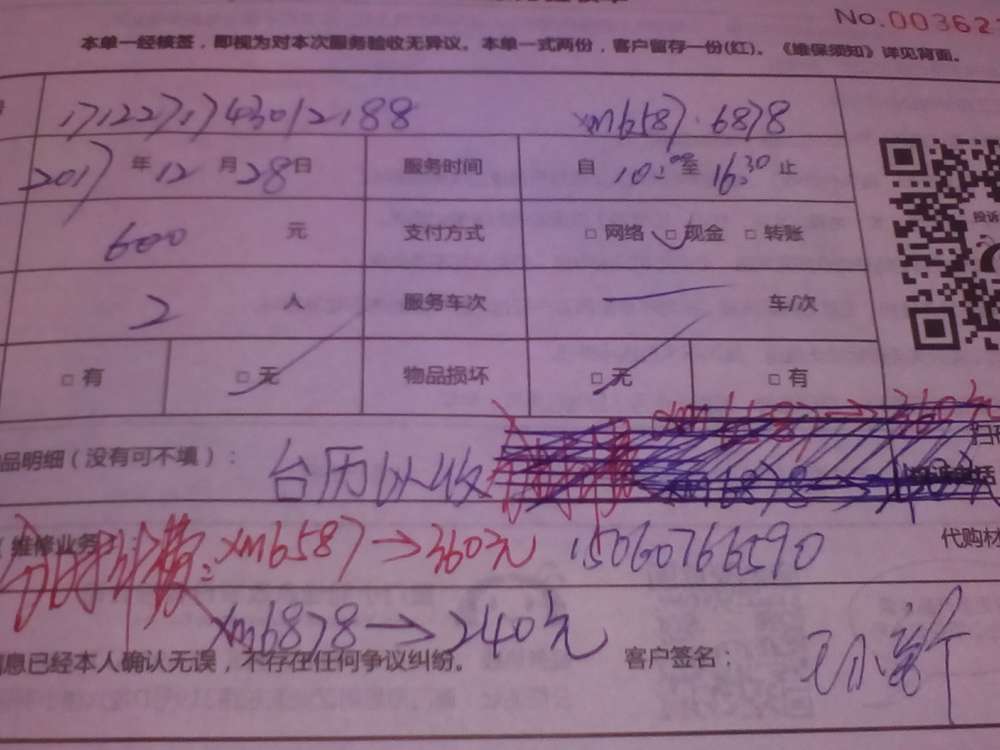 No.00362
本单一经核签，即视为对本次服务验收无异议。本单一式两份，客户留存一份(红)。《维保须知》详见背面。
1712271743012188 xm6587.6878
2017年12月28日 服务时间 自10:00至16:30止
600元 支付方式 □网络 □现金 □转账
2人 服务车次 车/次
□有 □无 物品损坏 □无 □有
品明细（没有可不填）： 台历以收
维修业务 xm6587→360元 15060766590 代购材
xm6878→240元
息已经本人确认无误，不存在任何争议纠纷。 客户签名：